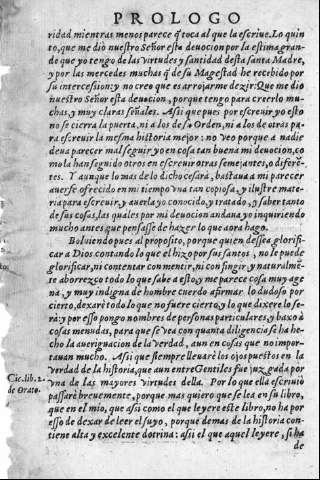 PROLOGO
ridad mientras menos parece q̃ toca al que la escriue. Lo quin
to, que me diò nuestro Señor esta deuocion por la estima gran-
de que yo tengo de las virtudes y santidad desta santa Madre,
y por las mercedes muchas q̃ de su Magestad he recebido por
su intercession: y no creo que es arrojarme dezir, Que me diò
nuestro Señor esta deuocion, porque tengo para creerlo mu-
chas, y muy claras señales. Assi que pues por escreuir yo esto
no se cierra la puerta, ni a los de su Orden, ni a los de otras pa-
ra escreuir la mesma historia mejor: no veo porque a nadie
deua parecer mal seguir yo en cosa tan buena mi deuocion, co
mo la han seguido otros en escreuir otras semejantes, o diferẽ-
tes. Y aunque lo mas de lo dicho cessarà, bastaua a mi parecer
auerse ofrecido en mi tiempo vna tan copiosa, y ilustre mate-
ria para escreuir, y auerla yo conocido, y tratado, y saber tanto
de sus cosas, las quales por mi deuocion andaua yo inquiriendo
mucho antes, que pensasse de hazer lo que aora hago.
Boluiendo pues al proposito, porque quien dessea glorifi-
car a Dios contando lo que el hizo por sus santos, no le puede
glorificar, ni contentar con mentir, ni con fingir, y naturalmẽ-
te aborrezco todo lo que sabe a esto, y me parece cosa muy age
na, y muy indigna de hombre cuerdo afirmar lo dudoso por
cierto, dexarè todo lo que no fuere cierto, y lo que dixere lo se-
rà: y por esso pongo nombres de personas particulares, y baxo à
cosas menudas, para que se vea con quanta diligencia se ha he-
cho la aueriguacion de la verdad, aun en cosas que no impor-
tauan mucho. Assi que siempre lleuarè los ojos puestos en la
verdad de la historia, que aun entre Gentiles fue juzgada por
Cic. lib. 2.
de Orato.
vna de las mayores virtudes della. Por lo que ella escriuiò
passarè breuemente, porque mas quiero que se lea en su libro,
que en el mio, que assi como el que leyere este libro, no ha por
esso de dexar de leer el suyo, porque demas de la historia con-
tiene alta y excelente dotrina: assi el que aquel leyere, si ha
de